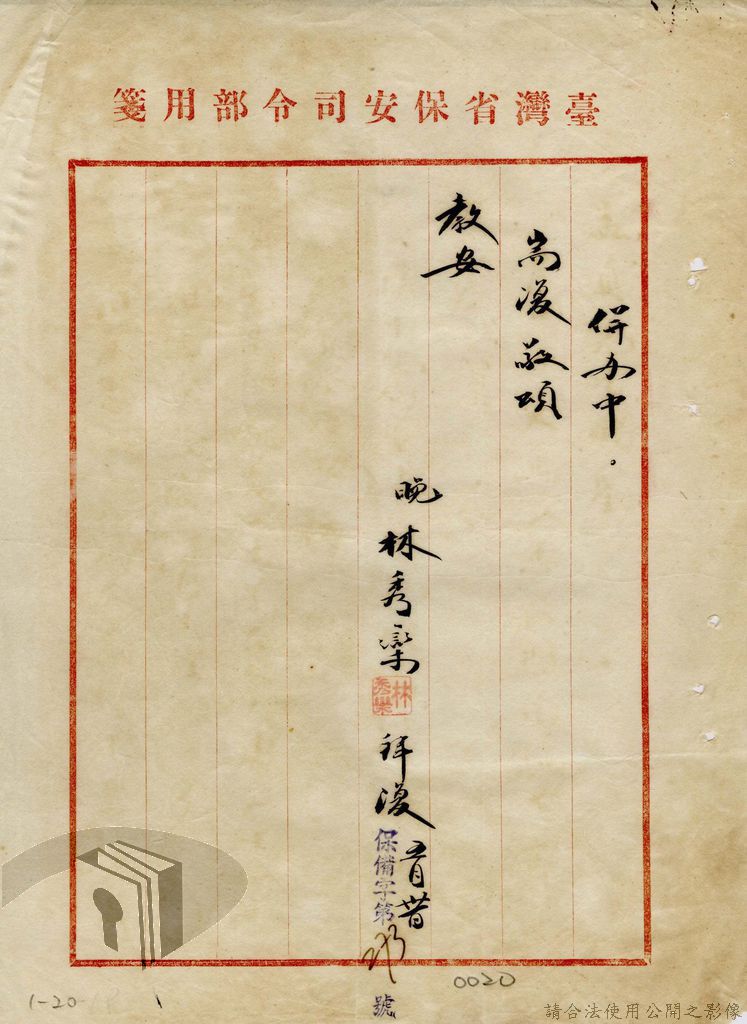 臺灣省保安司令部用箋
併办中。
耑復敬頌
教安
晚林秀欒
林秀欒
拜復
保備字第
號
0020
1-20
請合法使用公開之影像